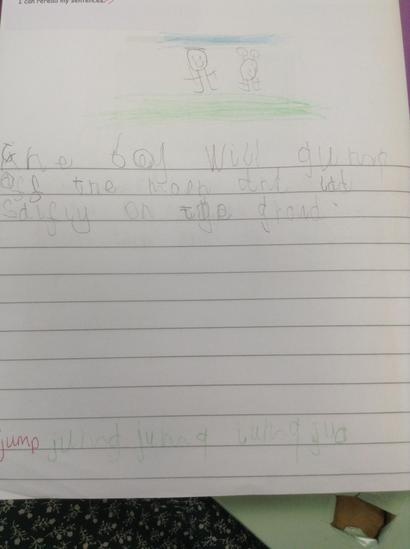 I can reread my sentences.
the boy will gump
off the moen and
saifuy on the groud.
jump jumg jumg jumg jug